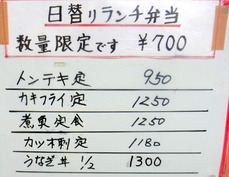 日替りランチ弁当
数量限定です ¥700
トンテキ定 950
カキフライ定 1250
煮魚定食 1250
カツオ刺定 1180
うなぎ丼 1/2 1300